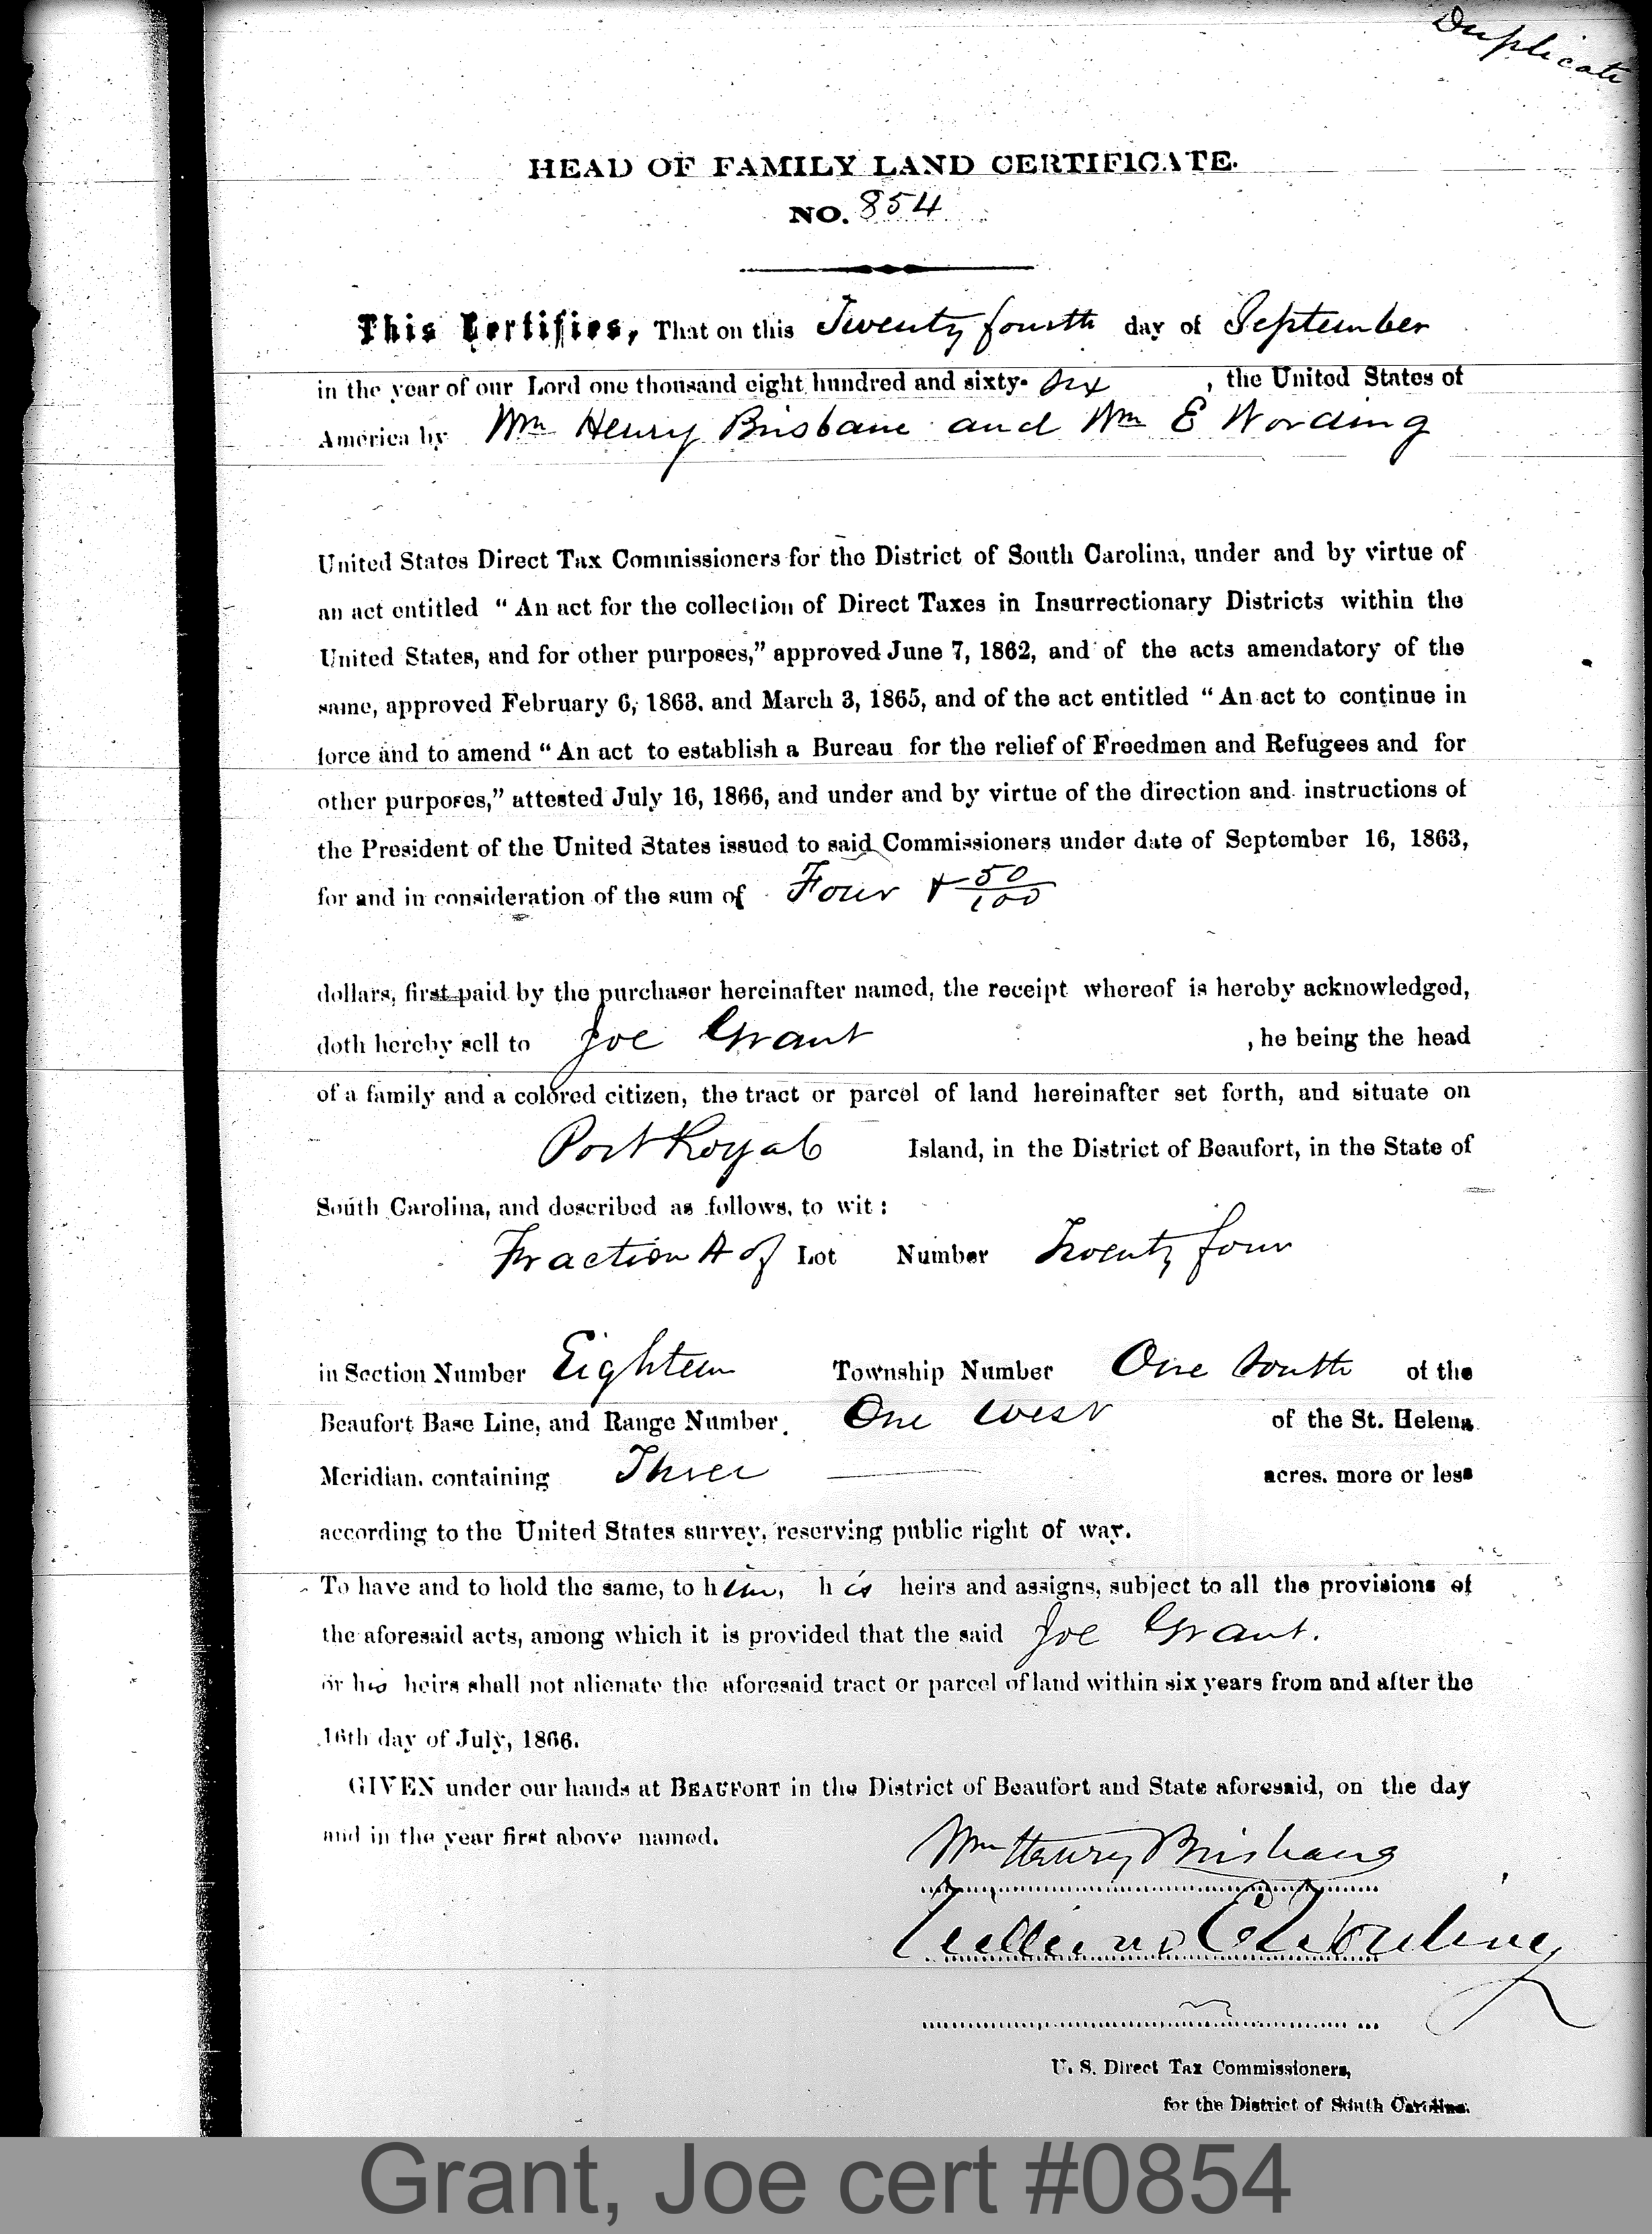 Duplicate
HEAD OF FAMILY LAND CERTIFICATE.
NO. 854
This Certifies, That on this Twenty fourth day of September
in the year of our Lord one thousand eight hundred and sixty- six , the United States of
America by Wm Henry Brisbane and Wm E Wording
United States Direct Tax Commissioners for the District of South Carolina, under and by virtue of
an act entitled “ An act for the collection of Direct Taxes in Insurrectionary Districts within the
United States, and for other purposes,” approved June 7, 1862, and of the acts amendatory of the
same, approved February 6, 1863, and March 3, 1865, and of the act entitled “ An act to continue in
force and to amend “ An act to establish a Bureau for the relief of Freedmen and Refugees and for
other purposes,” attested July 16, 1866, and under and by virtue of the direction and instructions of
the President of the United States issued to said Commissioners under date of September 16, 1863,
for and in consideration of the sum of Four & 50/100
dollars, first paid by the purchaser hereinafter named, the receipt whereof is hereby acknowledged,
doth hereby sell to Joe Grant , he being the head
of a family and a colored citizen, the tract or parcel of land hereinafter set forth, and situate on
Port Royal Island, in the District of Beaufort, in the State of
South Carolina, and described as follows, to wit :
Fraction A of Lot Number Twenty four
in Section Number Eighteen Township Number One South of the
Beaufort Base Line, and Range Number. One West of the St. Helena
Meridian, containing Three acres, more or less
according to the United States survey, reserving public right of way.
To have and to hold the same, to him, his heirs and assigns, subject to all the provisions of
the aforesaid acts, among which it is provided that the said Joe Grant.
or his heirs shall not alienate the aforesaid tract or parcel of land within six years from and after the
16th day of July, 1866.
GIVEN under our hands at BEAUFORT in the District of Beaufort and State aforesaid, on the day
and in the year first above named.
Wm Henry Brisbane
William E Wording
U. S. Direct Tax Commissioners,
for the District of South Carolina.
Grant, Joe cert #0854